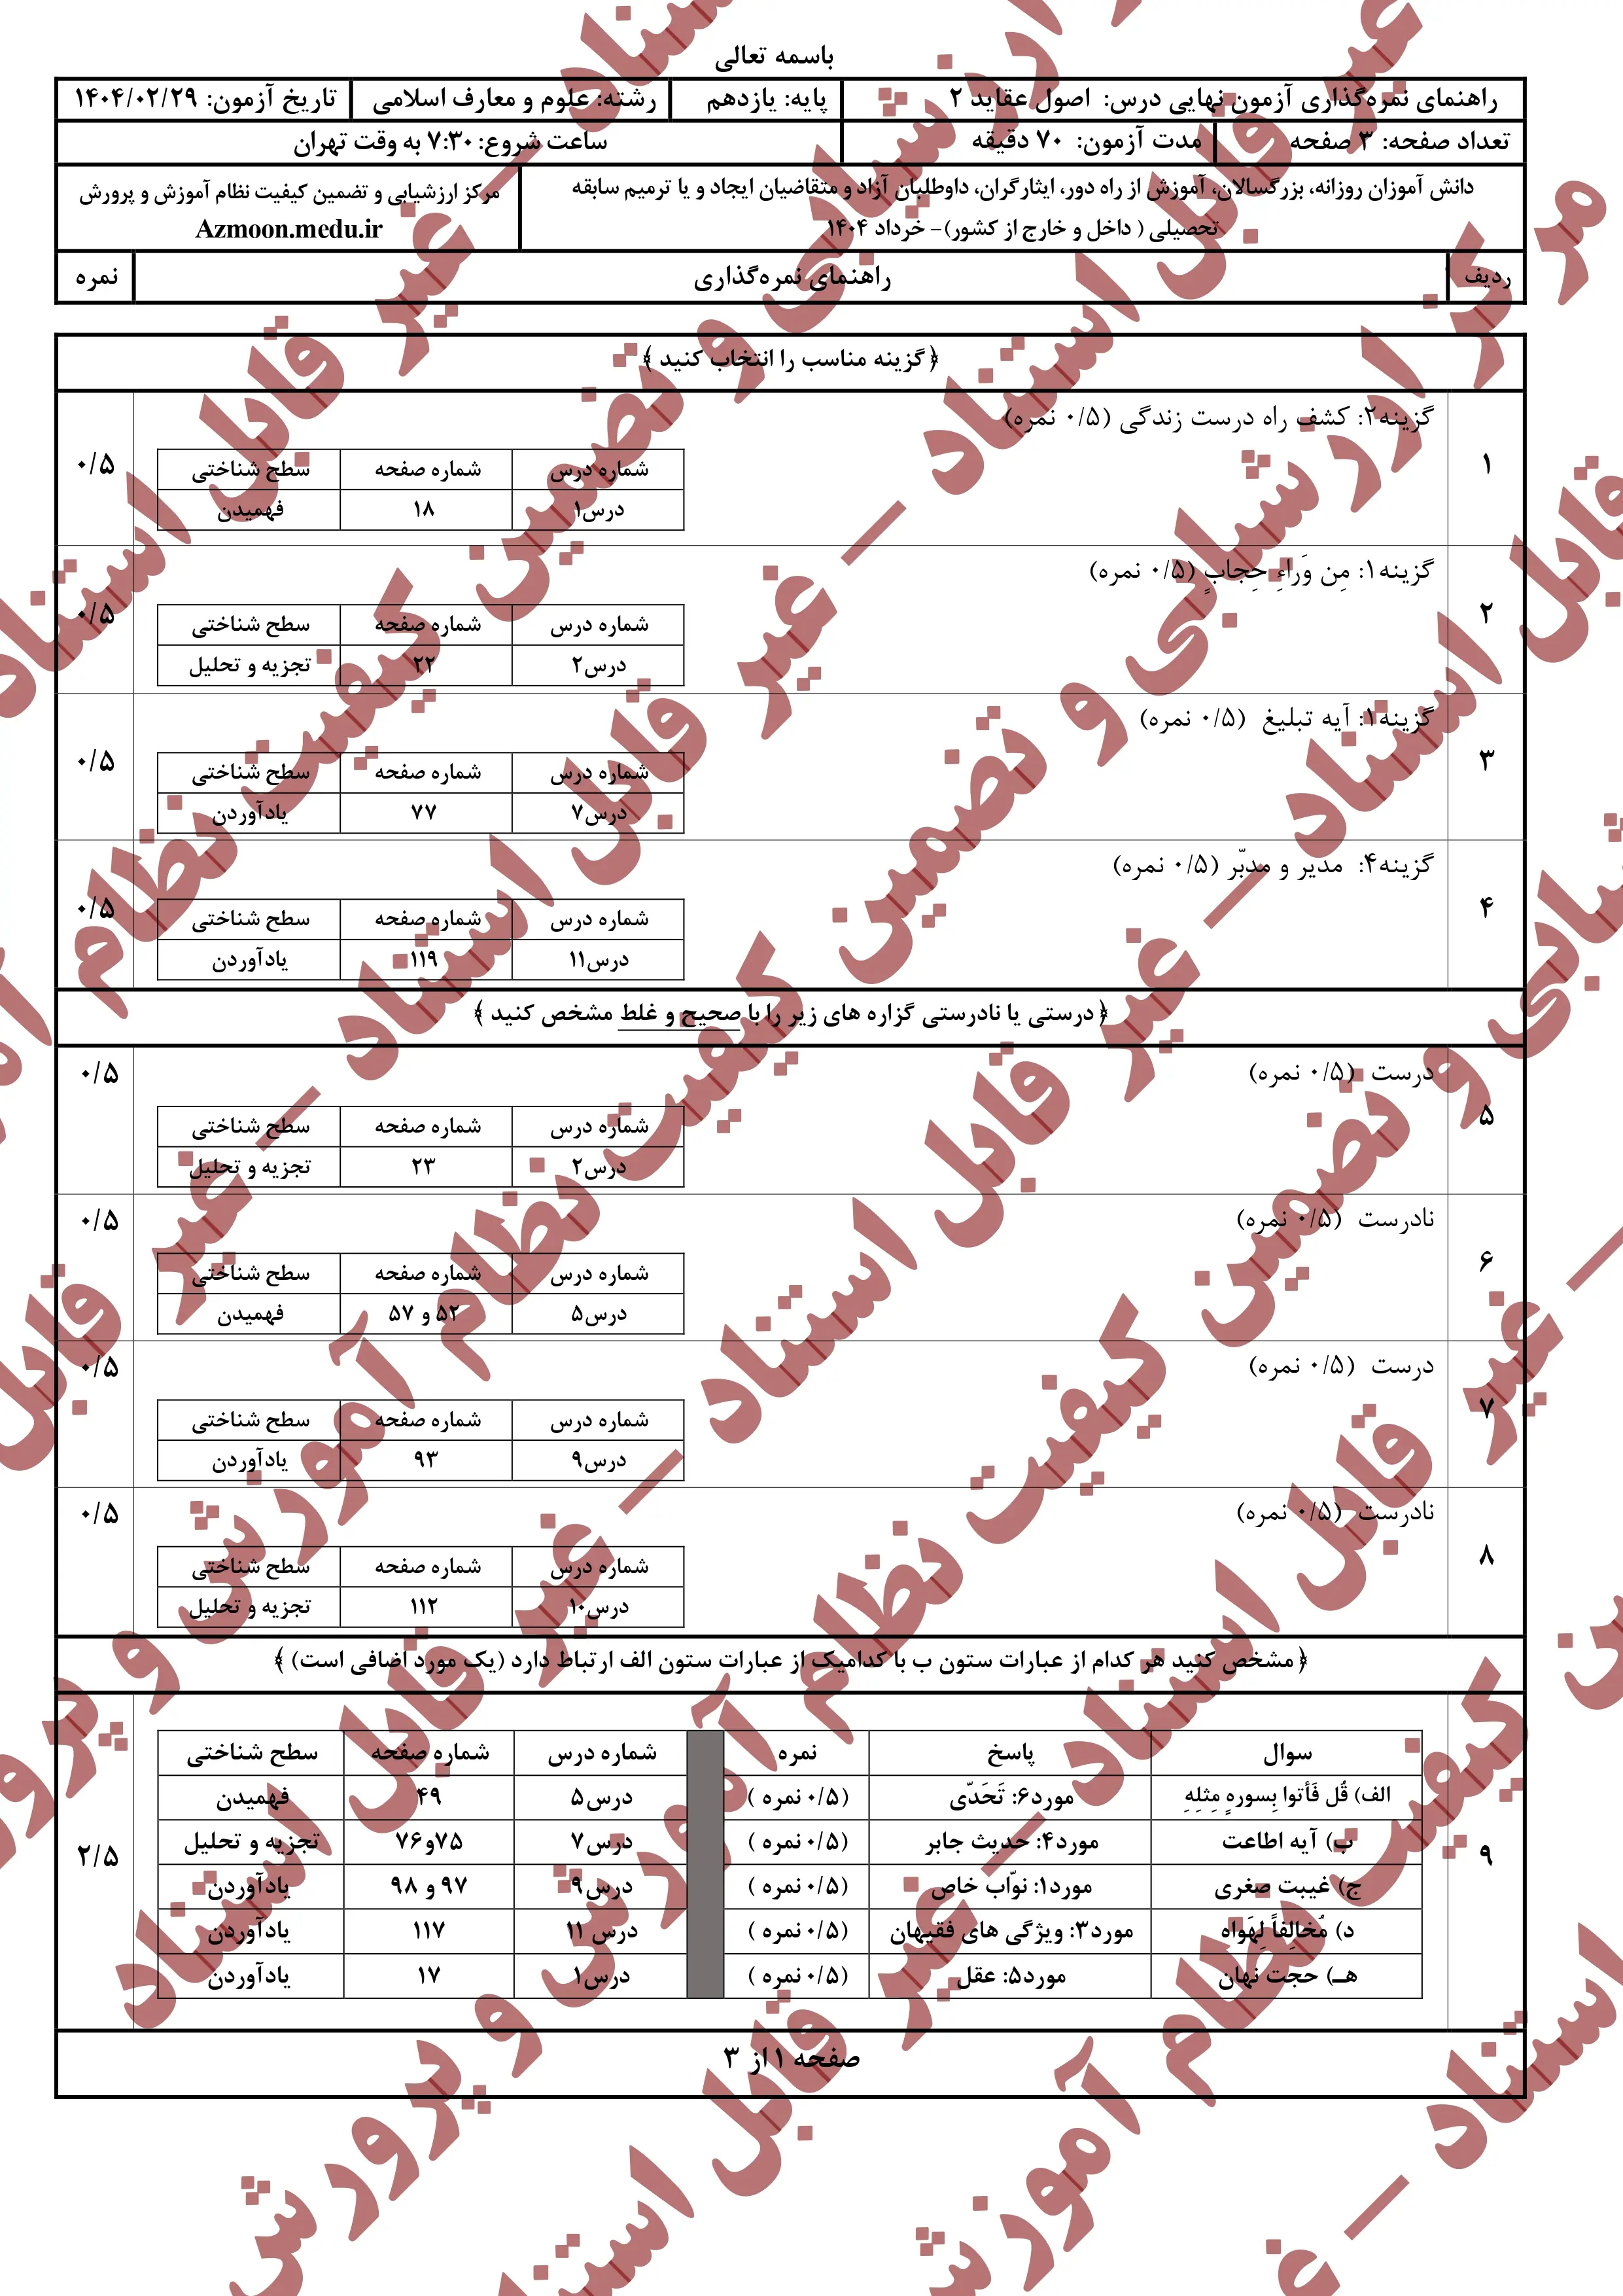 باسمه تعالی
راهنمای نمره‌گذاری آزمون نهایی درس: اصول عقاید ۲ پایه: یازدهم رشته: علوم و معارف اسلامی تاریخ آزمون: ۱۴۰۴/۰۲/۲۹
تعداد صفحه: ۳ صفحه مدت آزمون: ۷۰ دقیقه ساعت شروع: ۷:۳۰ به وقت تهران
دانش آموزان روزانه، بزرگسالان، آموزش از راه دور، ایثارگران، داوطلبان آزاد و متقاضیان ایجاد و یا ترمیم سابقه
تحصیلی ( داخل و خارج از کشور)- خرداد ۱۴۰۴
مرکز ارزشیابی و تضمین کیفیت نظام آموزش و پرورش
Azmoon.medu.ir
ردیف راهنمای نمره‌گذاری نمره
﴿ گزینه مناسب را انتخاب کنید ﴾
۱ گزینه۲: کشف راه درست زندگی (۰/۵ نمره) ۰/۵
شماره درس شماره صفحه سطح شناختی
درس۱ ۱۸ فهمیدن
۲ گزینه۱: مِن وَراءِ حِجابٍ (۰/۵ نمره) ۰/۵
شماره درس شماره صفحه سطح شناختی
درس۲ ۲۲ تجزیه و تحلیل
۳ گزینه۱: آیه تبلیغ (۰/۵ نمره) ۰/۵
شماره درس شماره صفحه سطح شناختی
درس۷ ۷۷ یادآوردن
۴ گزینه۴: مدیر و مدبّر (۰/۵ نمره) ۰/۵
شماره درس شماره صفحه سطح شناختی
درس۱۱ ۱۱۹ یادآوردن
﴿ درستی یا نادرستی گزاره های زیر را با صحیح و غلط مشخص کنید ﴾
۵ درست (۰/۵ نمره) ۰/۵
شماره درس شماره صفحه سطح شناختی
درس۲ ۲۳ تجزیه و تحلیل
۶ نادرست (۰/۵ نمره) ۰/۵
شماره درس شماره صفحه سطح شناختی
درس۵ ۵۲ و ۵۷ فهمیدن
۷ درست (۰/۵ نمره) ۰/۵
شماره درس شماره صفحه سطح شناختی
درس۹ ۹۳ یادآوردن
۸ نادرست (۰/۵ نمره) ۰/۵
شماره درس شماره صفحه سطح شناختی
درس۱۰ ۱۱۲ تجزیه و تحلیل
﴿ مشخص کنید هر کدام از عبارات ستون ب با کدامیک از عبارات ستون الف ارتباط دارد (یک مورد اضافی است) ﴾
۹ ۲/۵
سوال پاسخ نمره شماره درس شماره صفحه سطح شناختی
الف) قُل فَأتوا بِسورهٍ مِثلِهِ مورد۶: تَحَدّی (۰/۵ نمره ) درس۵ ۴۹ فهمیدن
ب) آیه اطاعت مورد۴: حدیث جابر (۰/۵ نمره ) درس۷ ۷۵و۷۶ تجزیه و تحلیل
ج) غیبت صغری مورد۱: نوّاب خاص (۰/۵ نمره ) درس۹ ۹۷ و ۹۸ یادآوردن
د) مُخالِفاً لِهَواه مورد۳: ویژگی های فقیهان (۰/۵ نمره ) درس ۱۱ ۱۱۷ یادآوردن
هـ) حجت نهان مورد۵: عقل (۰/۵ نمره ) درس۱ ۱۷ یادآوردن
صفحه ۱ از ۳
مرکز ارزشیابی و تضمین کیفیت نظام آموزش و پرورش – غیر قابل استناد